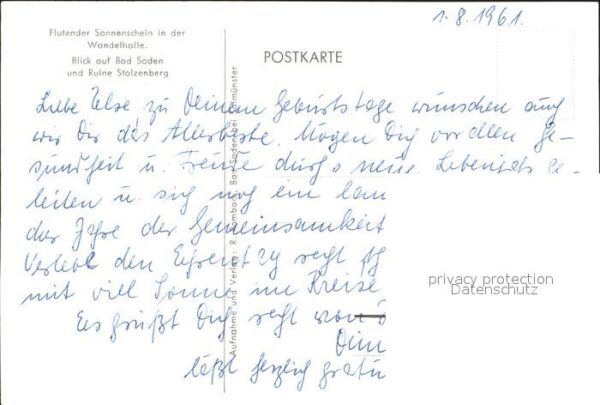 1.8.1961.
Flutender Sonnenschein in der
Wandelhalle.
Blick auf Bad Soden
und Ruine Stolzenberg
POSTKARTE
Liebe Else zu Deinem Geburtstage wünschen auch
wir Dir das Allerbeste. Mögen Dich vor allen Ge-
sundheit u. Freude durchs neue Lebensjahr be-
leiten u. sich noch ein
der Jahre der Gemeinsamkeit
Verlebe den recht
mit viel Sonne im Kreise
Es grüßt Dich recht
Dein
läßt herzlich
Aufnahme und Verlag: R. Rombach, Bad Soden bei Salmünster
privacy protection
Datenschutz